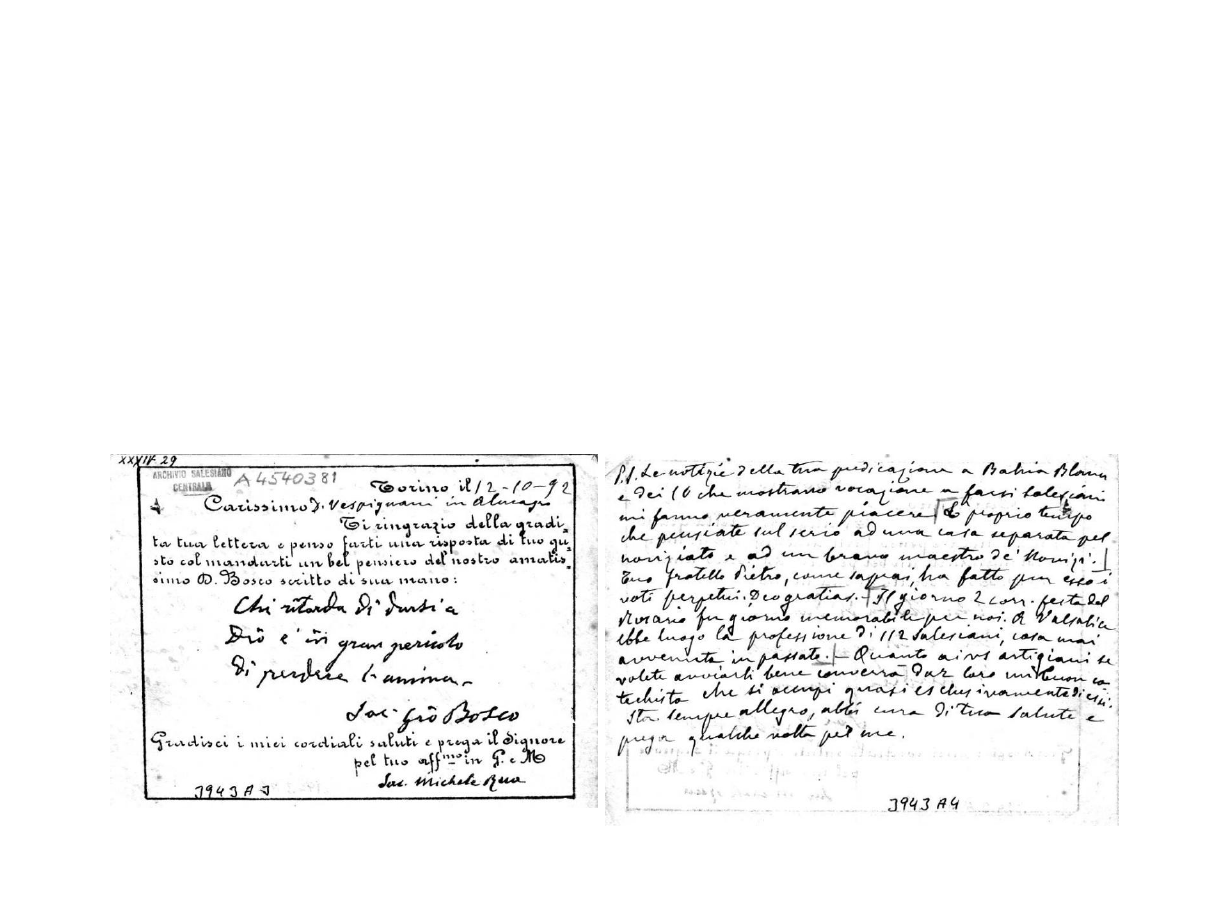 XXXIV-29
ARCHIVIO SALESIANO
CENTRALE
A 4540381
Torino il 12-10-92
Carissimo D. Vespignani in Almagro
Ti ringrazio della gradi-
ta tua lettera e penso farti una risposta di tuo gu-
sto col mandarti un bel pensiero del nostro amatis-
simo D. Bosco scritto di sua mano:
Chi ritarda di darsi a
Dio è in gran pericolo
di perdere l'anima
Sac. Gio Bosco
Gradisci i miei cordiali saluti e prega il Signore
pel tuo aff.mo in G. e M
Sac. Michele Rua
3943 A 3
P.S. Le notizie della tua predicazione a Bahia Blanca
e dei 10 che mostrano vocazione a farsi Salesiani
mi fanno veramente piacere. È proprio tempo
che pensiate sul serio ad una casa separata pel
noviziato e ad un bravo maestro de' Novizi.
Tuo fratello Pietro, come saprai, ha fatto pur esso i
voti perpetui. Deo gratias. - Il giorno 2 corr. festa del
Rosario fu giorno memorabile per noi. A Valsalice
ebbe luogo la professione di 112 Salesiani, cosa mai
avvenuta in passato. - Quanto ai vs artigiani se
volete avviarli bene converrà dar loro un buon ca
techista che si occupi quasi esclusivamente di essi.
Sta sempre allegro, abbi cura di tua salute e
prega qualche volta per me.
3943 A4